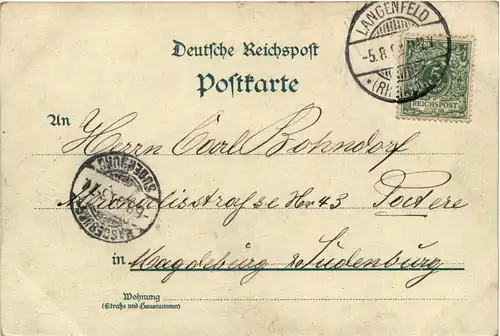 LANGENFELD
-5.8.
(RHEINL
5
REICHSPOST
Deutsche Reichspost
Postkarte
An Herrn Carl Bohndorf
Hr 43
in Magdeburg Sudenburg
SUDENBURG
MAGDEBURG
Wohnung
(Straße und Hausnummer)